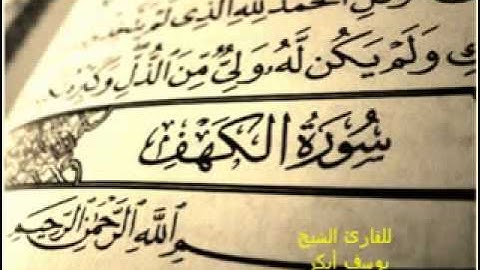 وقل الحمد لله الذي لم يتخذ
ك ولم يكن له ولي من الذل وكبره
سورة الكهف
بسم الله الرحمن الرحيم
للقارئ الشيخ
يوسف أبكر